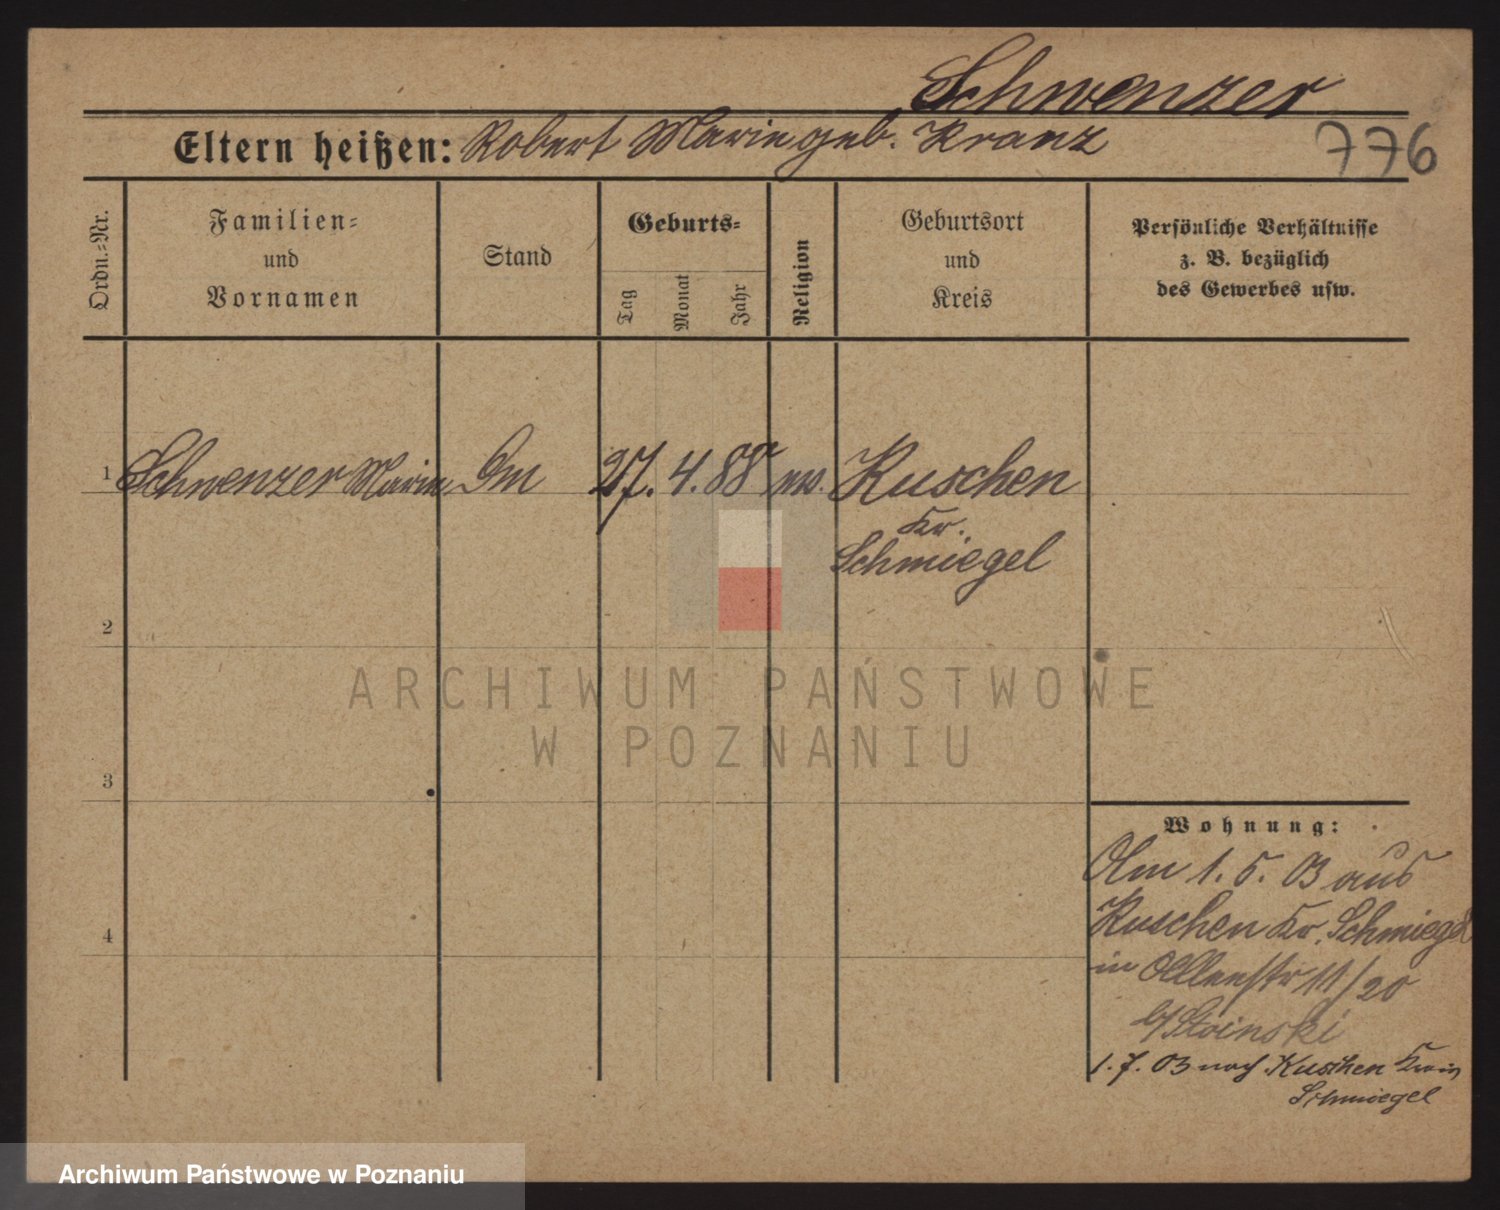 Schwenzer
Eltern heißen: Robert Marie geb. Kranz
776
Ordn.-Nr.
Familien-
und
Vornamen
Stand
Geburts-
Tag
Monat
Jahr
Religion
Geburtsort
und
Kreis
Persönliche Verhältnisse
z. B. bezüglich
des Gewerbes usw.
1 Schwenzer Marie 27. 4. 88 Kuschen
Kr.
Schmiegel
2
3
4
ARCHIWUM PAŃSTWOWE
W POZNANIU
Wohnung:
1. 5. 03 aus
Kuschen Kr. Schmiegel
in 11/20
b/Stoinski
1. 7. 03 nach Kuschen Kreis
Schmiegel
Archiwum Państwowe w Poznaniu